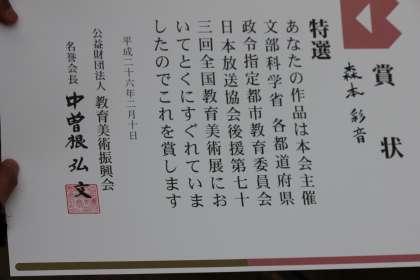 賞状
森本彩音
特選
あなたの作品は本会主催
文部科学省 各都道府県
政令指定都市教育委員会
日本放送協会後援第七十
三回全国教育美術展にお
いてとくにすぐれていま
したのでこれを賞します
平成二十六年二月十日
公益財団法人 教育美術振興会
名誉会長 中曽根弘文